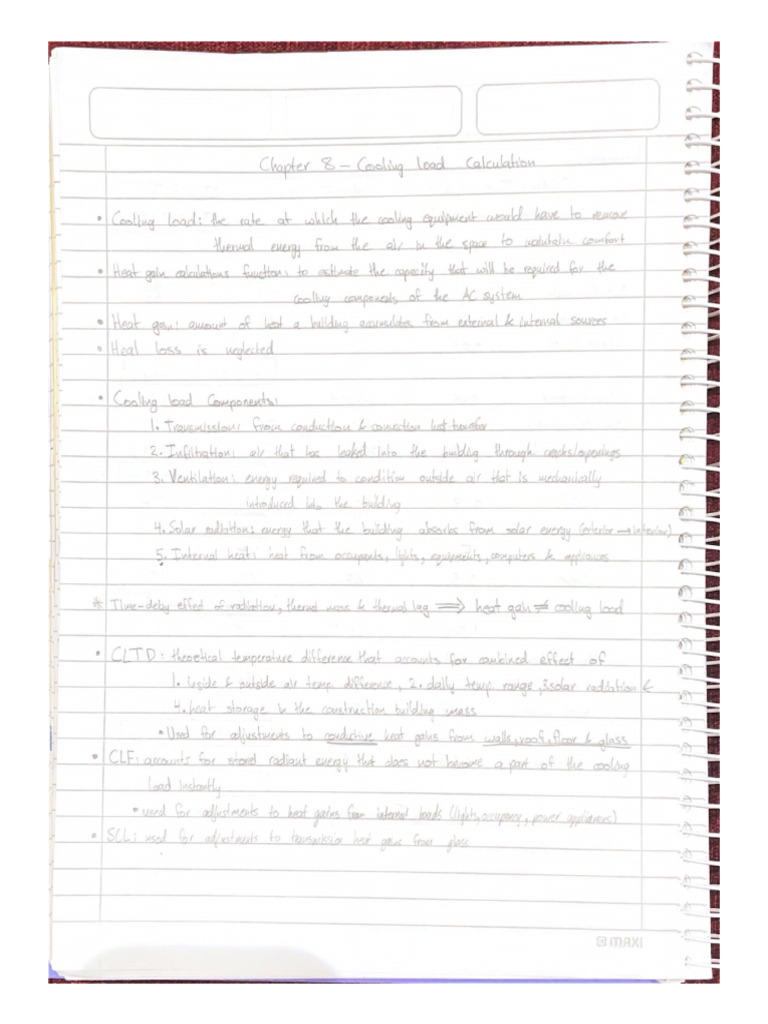 Chapter 8 – Cooling Load Calculation
• Cooling Load: the rate at which the cooling equipment would have to remove
thermal energy from the air in the space to maintain comfort
• Heat gain calculations function: to estimate the capacity that will be required for the
cooling components of the AC system
• Heat gain: amount of heat a building accumulates from external & internal sources
• Heat loss is neglected
• Cooling load Components:
1. Transmission: from conduction & convection heat transfer
2. Infiltration: air that has leaked into the building through cracks/openings
3. Ventilation: energy required to condition outside air that is mechanically
introduced into the building
4. Solar radiation: energy that the building absorbs from solar energy (exterior → interior)
5. Internal heat: heat from occupants, lights, equipments, computers & appliances
* Time-delay effect of radiation, thermal mass & thermal lag ⟹ heat gain ≠ cooling load
• CLTD: theoretical temperature difference that accounts for combined effect of
1. inside & outside air temp. difference, 2. daily temp. range, 3. solar radiation &
4. heat storage in the construction building mass
• Used for adjustments to conductive heat gains from walls, roof, floor & glass
• CLF: accounts for stored radiant energy that does not become a part of the cooling
load instantly
• used for adjustments to heat gains from internal loads (lights, occupancy, power appliances)
• SCL: used for adjustments to transmission heat gains from glass
MAXI